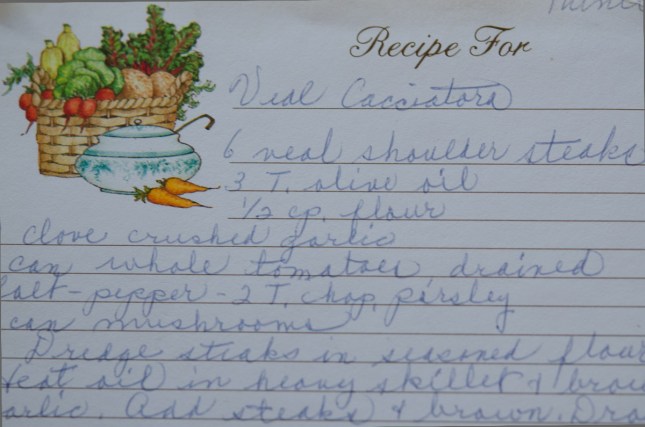 Recipe For
Veal Cacciatora
6 veal shoulder steaks
3 T. olive oil
1/2 cp. flour
clove crushed garlic
can whole tomatoes, drained
salt - pepper - 2 T. chop. parsley
can mushrooms
Dredge steaks in seasoned flour
Heat oil in heavy skillet & brow
arlic. Add steaks & brown. Dra